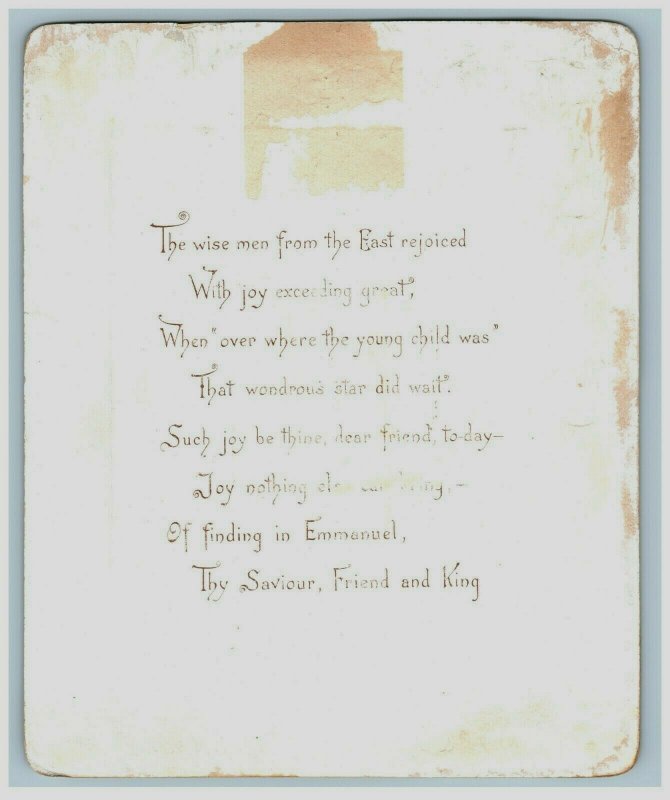 The wise men from the East rejoiced
With joy exceeding great,
When "over where the young child was"
That wondrous star did wait.
Such joy be thine, dear friend, to-day—
Joy nothing else can bring,—
Of finding in Emmanuel,
Thy Saviour, Friend and King